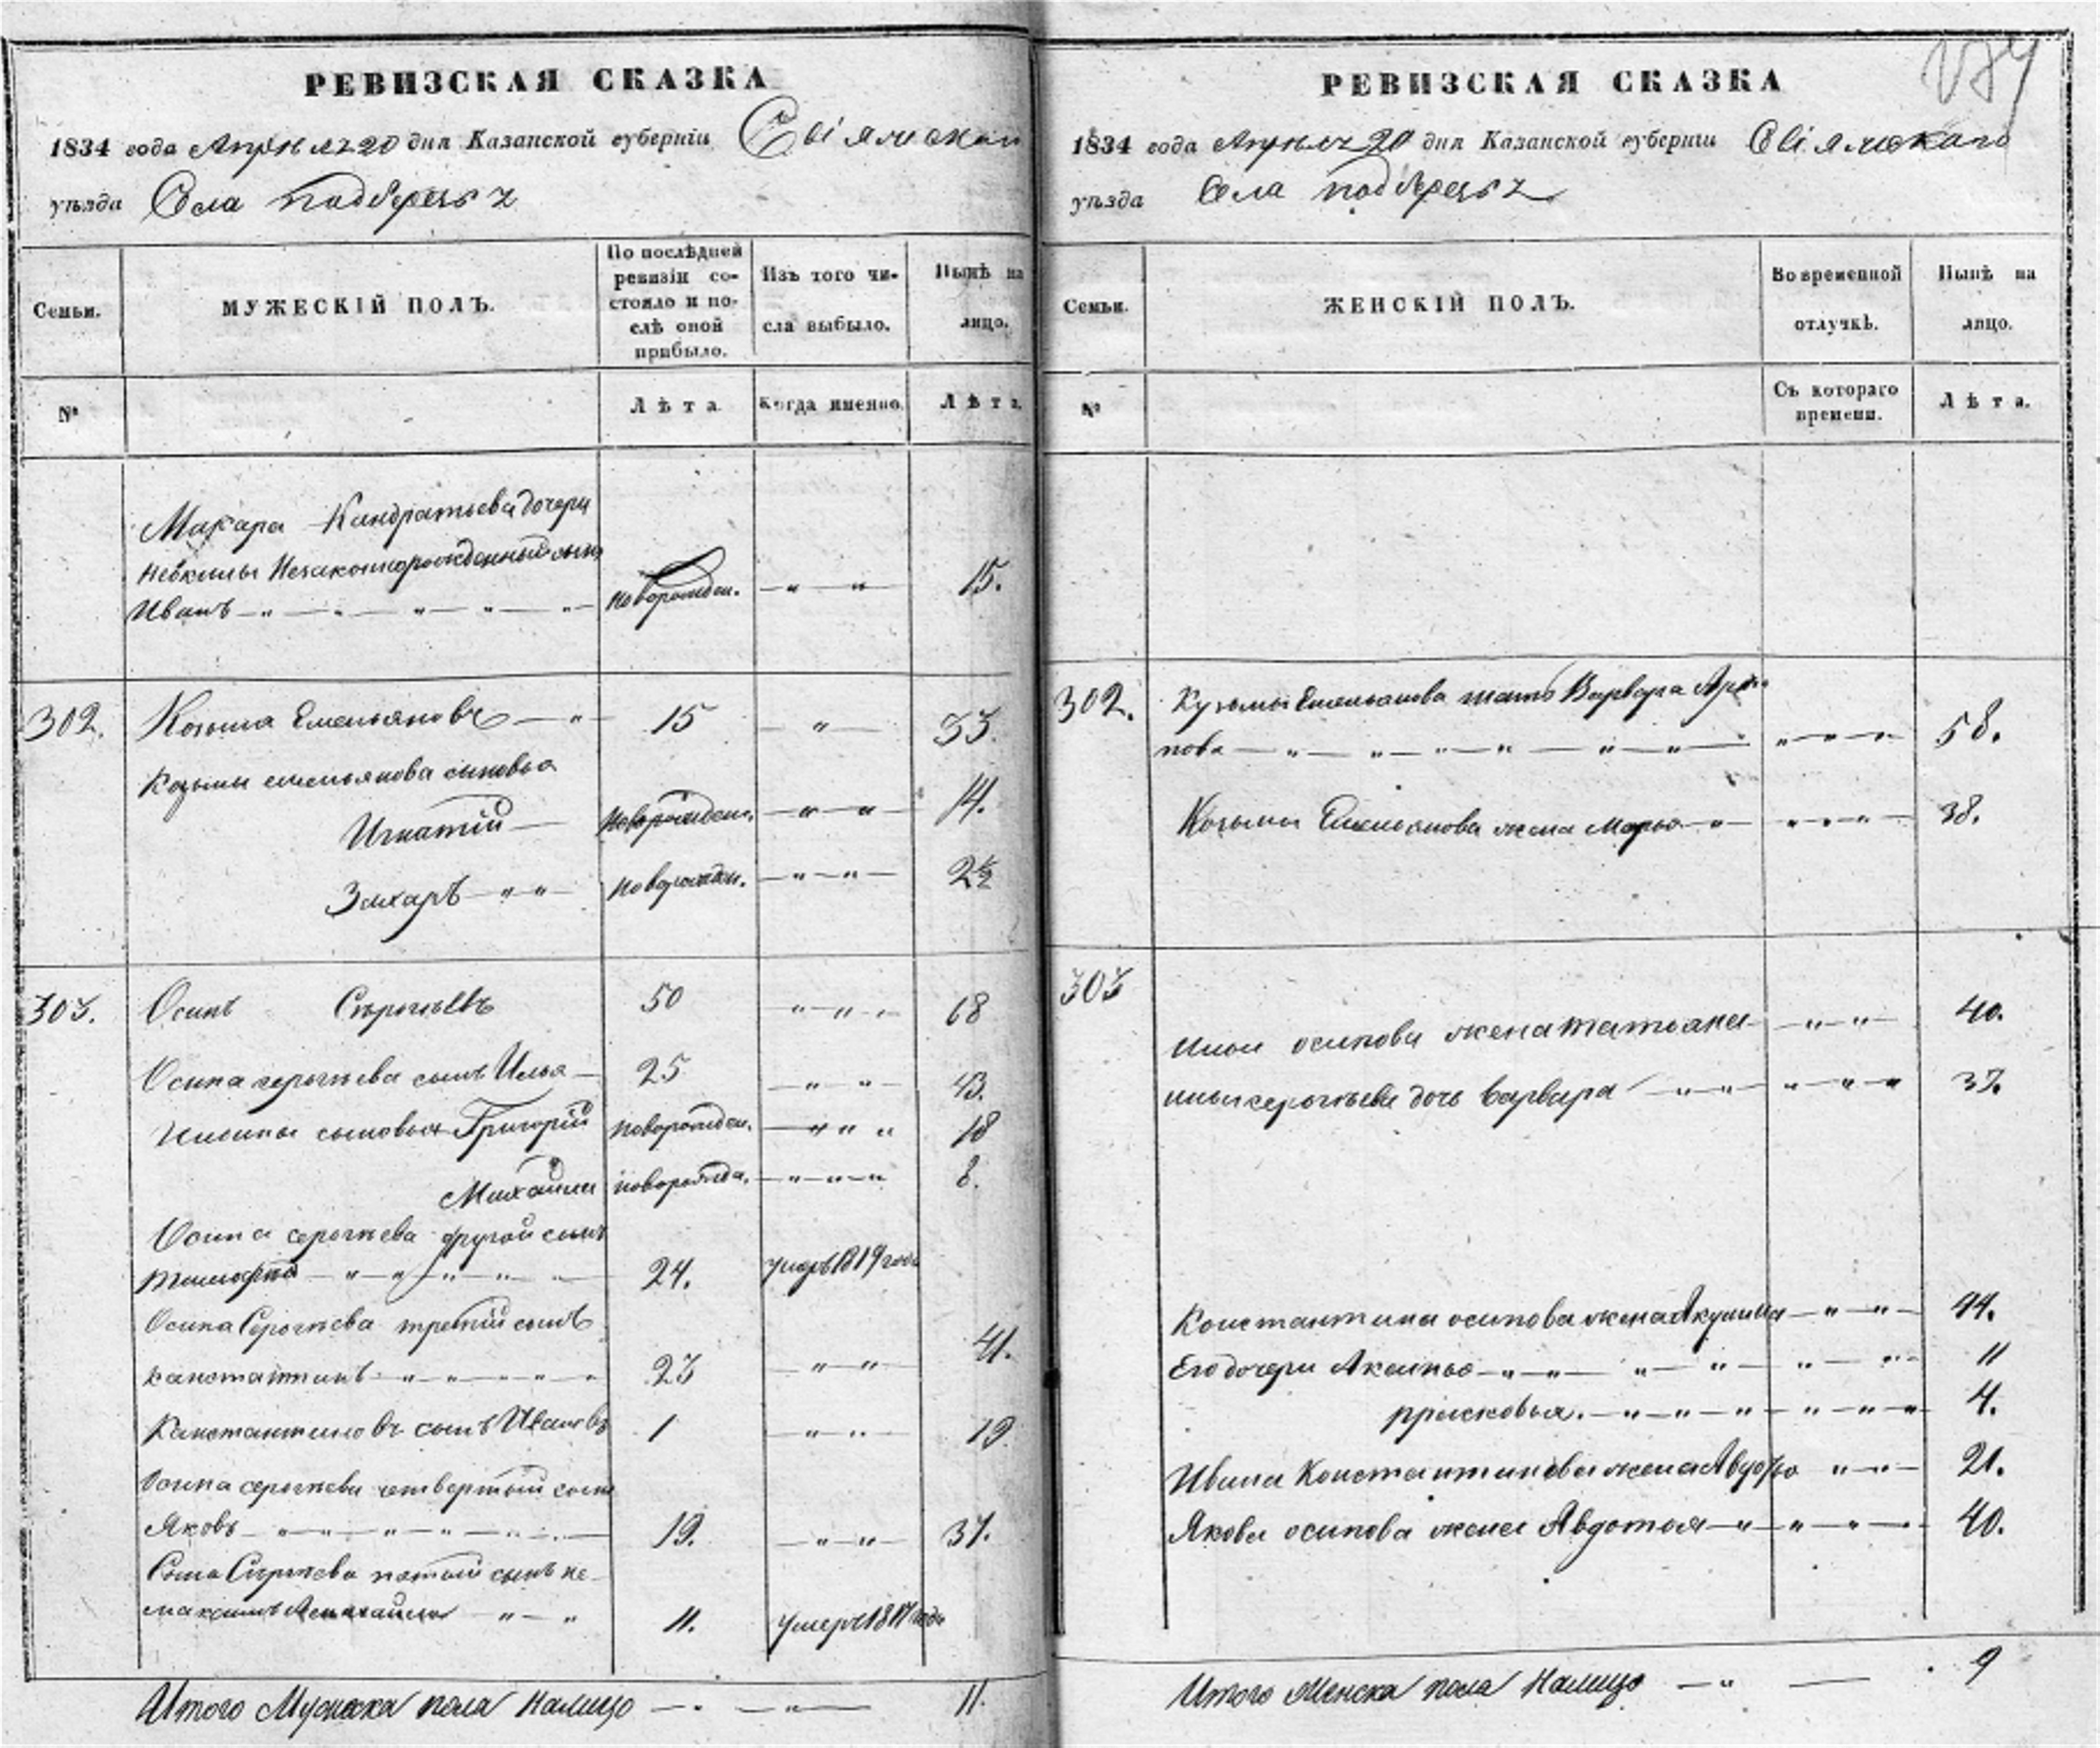 РЕВИЗСКАЯ СКАЗКА
1834 года Апреля 20 дня Казанской губерніи Свіяжскаго
уѣзда Села подберезья
Семьи.
МУЖЕСКІЙ ПОЛЪ.
По послѣдней
ревизіи со-
стояло и по-
слѣ оной
прибыло.
Изъ того чи-
сла выбыло.
Нынѣ на
лицо.
№
Лѣта
Когда именно.
Лѣта.
Макара Кандратьева дочери
Незаконнорожденный сынъ
Иванъ новорожден. 15.
302. Козьма Емельяновъ 15 33.
Козьмы емельянова сыновья
Игнатій новорожден. 14.
Захаръ новорожден. 2½
303. Осипъ Сергѣевъ 50 68
Осипа сергѣева сынъ Илья 25 43.
Ильины сыновья Григорій новорожден. 18
Михаила новорожде. 8.
Осипа сергѣева другой сынъ
тимофей 24. умеръ 1819 года
Осипа Сергѣева третій сынъ
канстантинъ 23 41.
Канстантиновъ сынъ Ивановъ 1 19
Осипа сергѣева четвертый сынъ
Яковъ 19. 37.
Осипа Сергѣева пятый сынъ
11. умеръ года
Итого Мужеска пола Налицо 11.
РЕВИЗСКАЯ СКАЗКА
1834 года Апреля 20 дня Казанской губерніи Свіяжскаго
уѣзда Села подберезья
Семьи.
ЖЕНСКІЙ ПОЛЪ.
Во временной
отлучкѣ.
Нынѣ на
лицо.
№
Съ котораго
времени.
Лѣта.
302. Кузьмы Емельянова мать Варвара
пова 58.
Козьмы Емельянова жена Марья 38.
303
Ильи осипова жена татьяна 40.
ильи сергѣева дочь варвара 37.
Константина осипова жена Акулина 44.
Его дочери Аксинья 11
прасковья. 4.
Ивана Константинова жена 21.
Якова осипова жена Авдотья 40.
Итого Женска пола Налицо 9